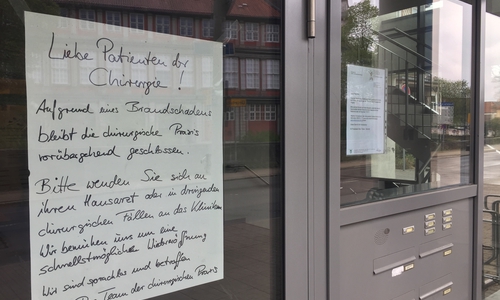 Liebe Patienten der
Chirurgie !
Aufgrund eines Brandschadens
bleibt die chirurgische Praxis
vorübergehend geschlossen.
Bitte wenden Sie sich an
ihren Hausarzt oder in dringenden
chirurgischen Fällen an das Klinikum
Wir bemühen uns um eine
schnellstmögliche Wiedereröffnung
Wir sind sprachlos und betroffen
Team der chirurgischen Praxis